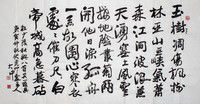 玉露凋傷楓樹
林巫山巫峽氣蕭
森江間波浪兼
天湧塞上風雲
接地陰叢菊兩
開他日淚孤舟
一繫故園心寒
衣處處催刀尺白
帝城高急暮砧